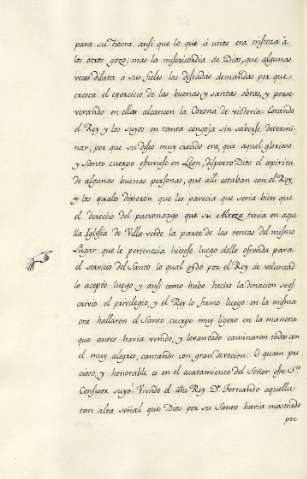 para su tierra ansi que lo que â unos era tristeza â
los otros gozo; mas la misericordia de Dios, que algunas
veces dilata a sus fieles las deseadas demandas por que
crezca el exercicio de las buenas, y santas obras, y perse
verando en ellas alcancen la Corona de victoria: Estando
el Rey y los suyos en tanta congoja sin saberse determi
nar, por que su deseo muy crecido era, que aquel glorioso
y Santo cuerpo estuviese en Léon, dispertò Dios el espiritu
de algunas buenas personas, que alli estaban con el Rey,
y los quales digeron que les parecia que seria bien que
el derecho del patronazgo que su Alteza tenia en aque
lla Iglesia de Villa-verde la parte de las rentas del mismo
Lugar que le pertenecia hiciese luego dello ofrenda para
el servicio del Santo lo qual oydo por el Rey de voluntad
lo acepto luego y ansi como hubo hecho la donacion
cervio el privilegio, y el Rey lo firmo luego en la misma
ora hallaron el Santo cuerpo muy ligero en la manera
que antes havia venido, y levantado caminaron todos con
el muy alegres, cantando con gran devocion. O quam pre
cioso, y honorable es en el acatamiento del Señor este Sto
Confesor suyo! Viendo el dho Rey Dn Fernando aquella
tan alta señal que Dios por su Santo havia mostrado
por